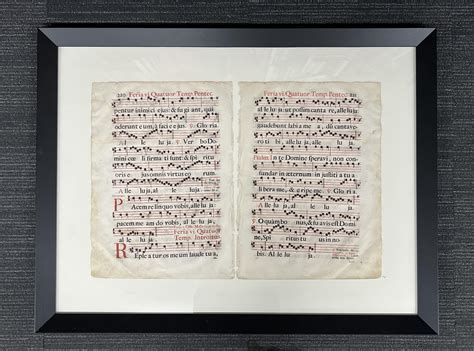 220 Feria vi Quatuor Temp. Pentec.
pentur inimici ejus: & fugiant, qui
oderunt eum, à facie ejus. ℣. Gloria.
Alleluja, alleluja. ℣. Verbo Do
mini cœli firmati sunt: & spiritu
oris ejus omnis virtus eorum.
Alleluja, alleluja.
Pacem relinquo vobis, alleluja:
pacem meam do vobis, alleluja
alleluja.
Feria vi Quatuor
Temp. Introitus.
Repleatur os meum laude tu a,
Feria vi Quatuor Temp. Pentec. 221
alleluja: ut possim cantare, alleluja:
gaudebunt labia mea, dum cantavero
tibi, alleluja, alleluja.
Psalm. In te Domine speravi, non con
fundar in æternum: in justitia tua
libera me, & eripe me. ℣. Gloria.
Alleluja, alleluja. ℣.
O quam bonus, & suavis est Domi
ne, Spiritus tuus in no
bis. Alleluja.